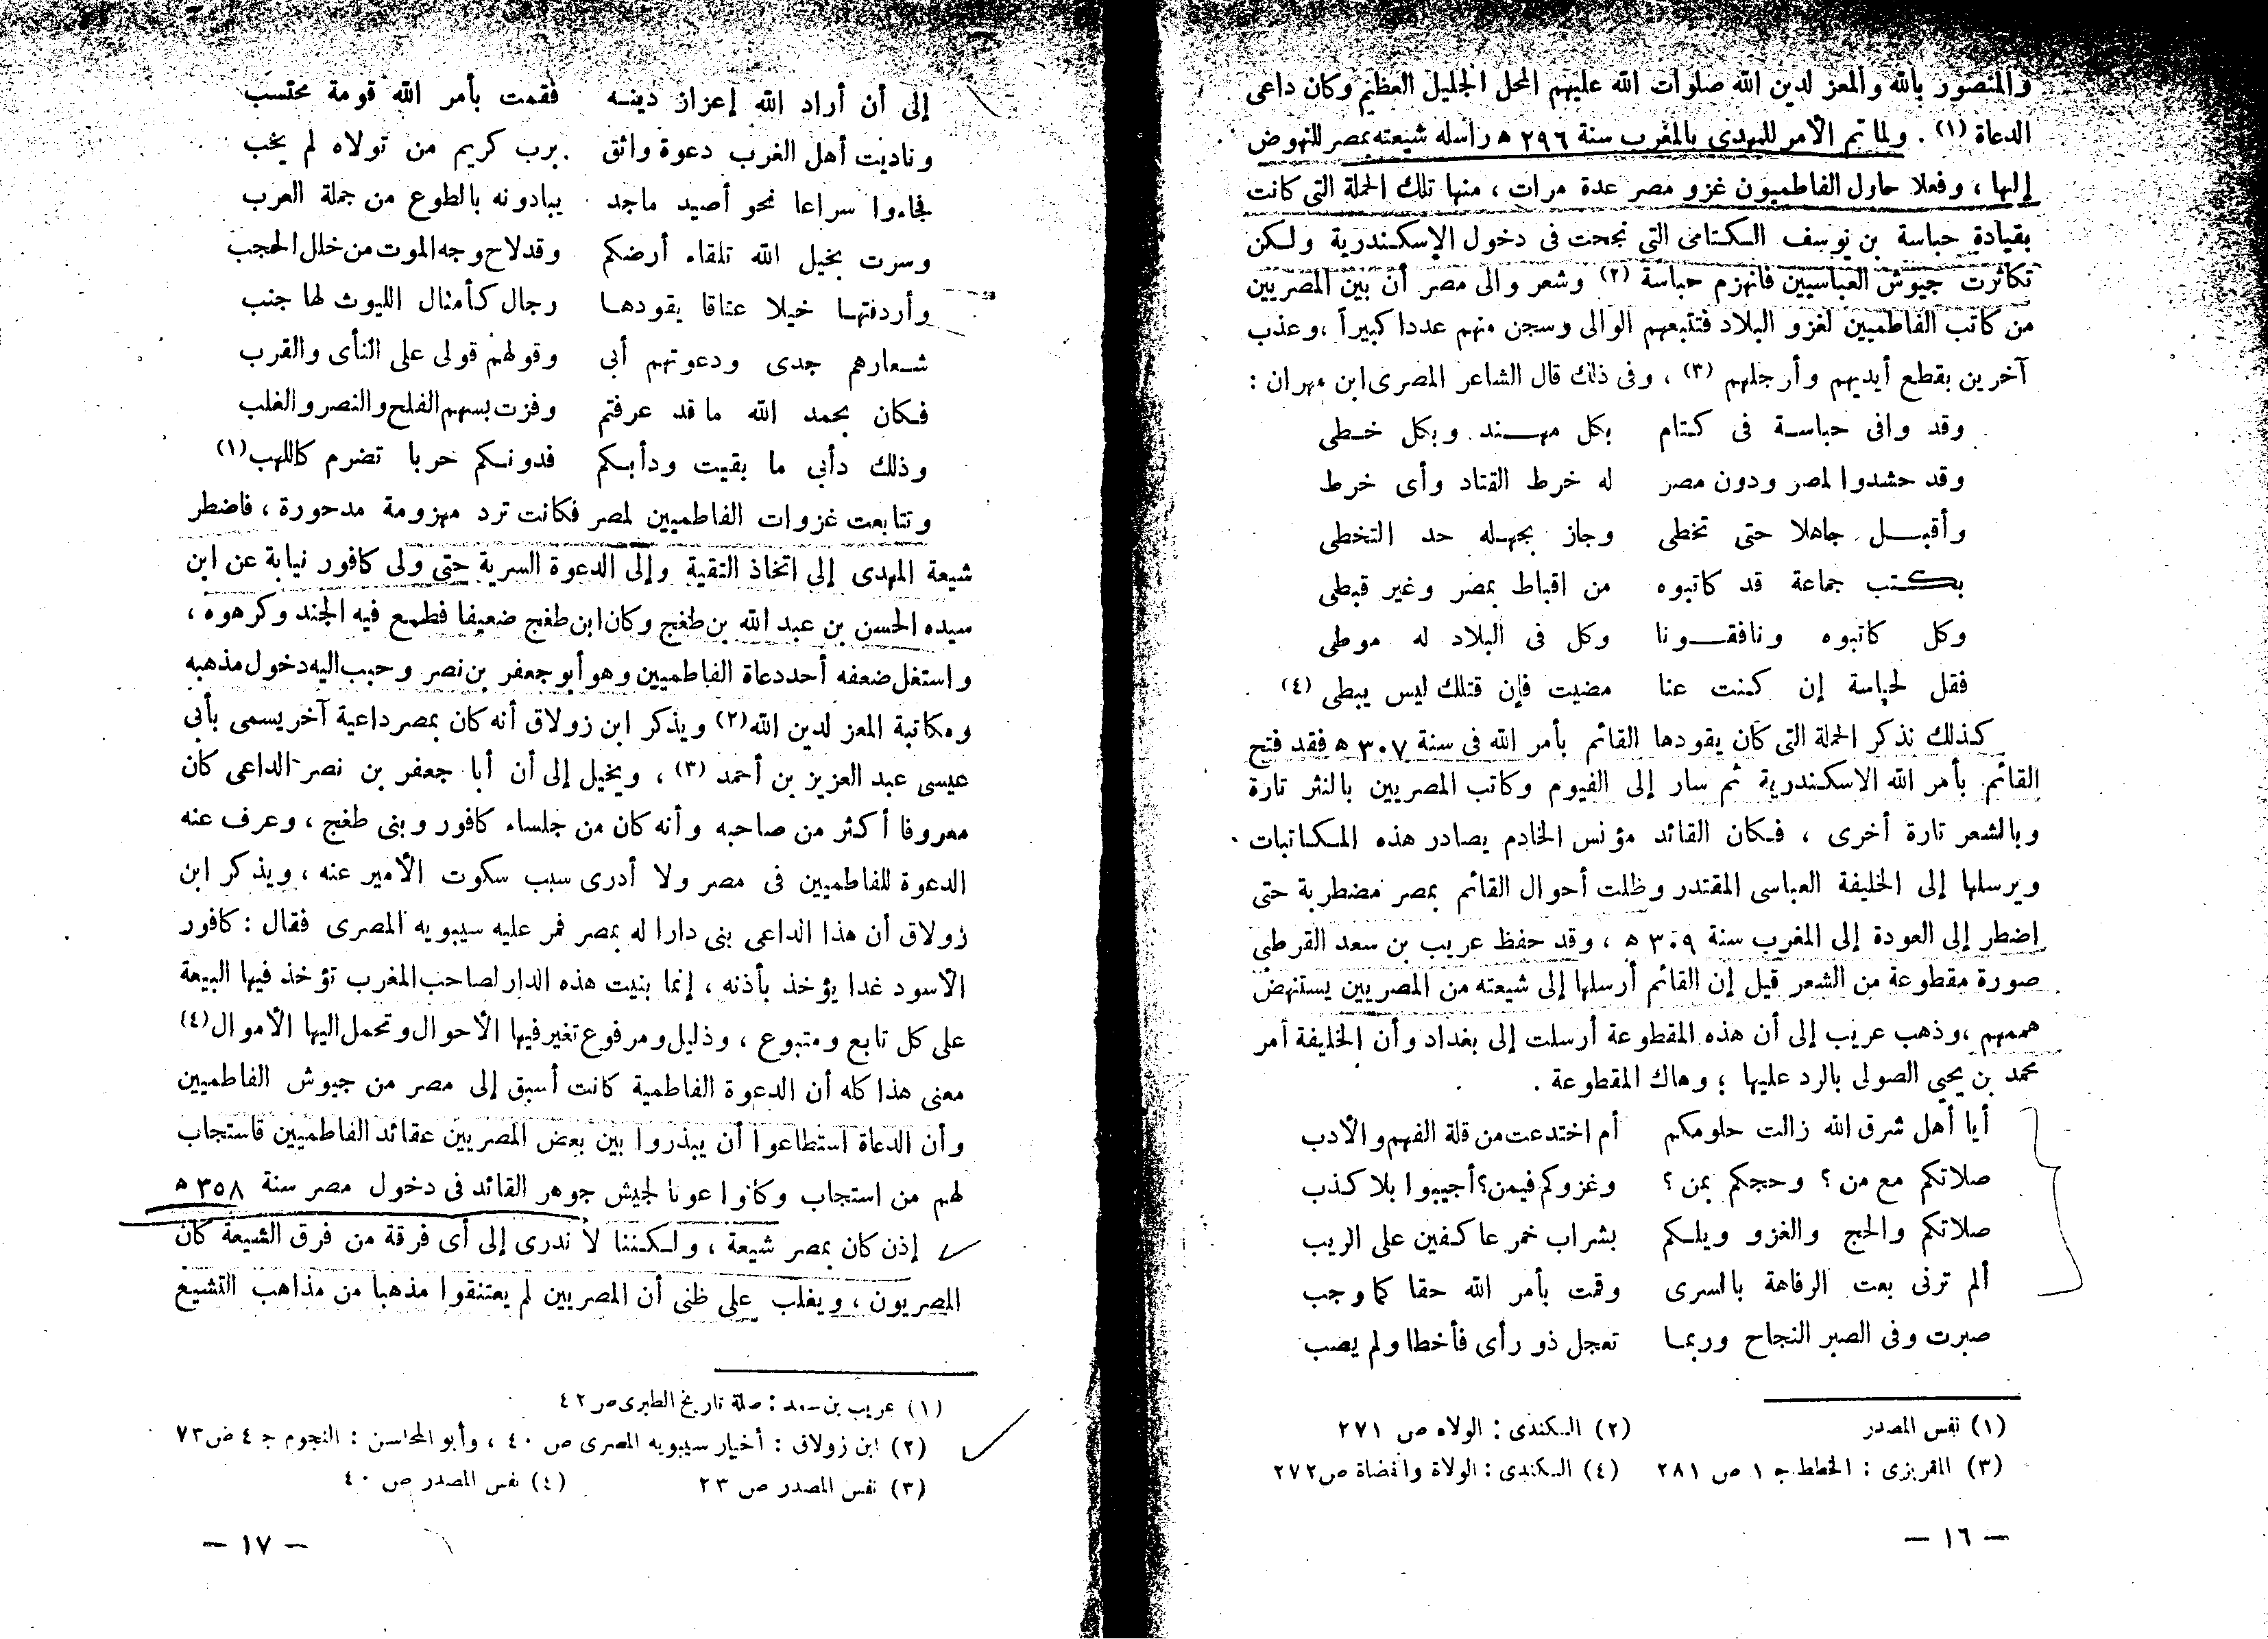 والمنصور بالله والمعز لدين الله صلوات الله عليهم المحل الجليل العظيم وكان داعى
الدعاة (١) . ولما تم الأمر للمهدى بالمغرب سنة ٢٩٦ ه راسله شيعته بمصر للنهوض
إليها ، وفعلا حاول الفاطميون غزو مصر عدة مرات ، منها تلك الحملة التى كانت
بقيادة حباسة بن يوسف الكتامى التى نجحت فى دخول الإسكندرية ولكن
تكاثرت جيوش العباسيين فانهزم حباسة (٢) وشعر والى مصر أن بين المصريين
من كاتب الفاطميين لغزو البلاد فتتبعهم الوالى وسجن منهم عددا كبيراً ، وعذب
آخرين بقطع أيديهم وأرجلهم (٣) ، وفى ذلك قال الشاعر المصرى ابن مهران :
وقد وافى حباسة فى كتام بكل مهند وبكل خطى
وقد حشدوا لمصر ودون مصر له خرط القتاد وأى خرط
وأقبل جاهلا حتى تخطى وجاز بجهله حد التخطى
بكتب جماعة قد كاتبوه من اقباط بمصر وغير قبطى
وكل كاتبوه ونافقونا وكل فى البلاد له موطى
فقل لحباسة إن كنت عنا مضيت فإن قتلك ليس يبطى (٤)
كذلك نذكر الحملة التى كان يقودها القائم بأمر الله فى سنة ٣٠٧ ه فقد فتح
القائم بأمر الله الاسكندرية ثم سار إلى الفيوم وكاتب المصريين بالنثر تارة
وبالشعر تارة أخرى ، فكان القائد مؤنس الخادم يصادر هذه المكاتبات
ويرسلها إلى الخليفة العباسى المقتدر وظلت أحوال القائم بمصر مضطربة حتى
اضطر إلى العودة إلى المغرب سنة ٣٠٩ ه ، وقد حفظ عريب بن سعد القرطبى
صورة مقطوعة من الشعر قيل إن القائم أرسلها إلى شيعته من المصريين يستنهض
هممهم ، وذهب عريب إلى أن هذه المقطوعة أرسلت إلى بغداد وأن الخليفة أمر
محمد بن يحيى الصولى بالرد عليها ؛ وهاك المقطوعة .
أيا أهل شرق الله زالت حلومكم أم اختدعت من قلة الفهم والأدب
صلاتكم مع من ؟ وحجكم بمن ؟ وغزوكم فيمن ؟ أجيبوا بلا كذب
صلاتكم والحج والغزو ويلكم بشراب خمر عاكفين على الريب
ألم ترنى بعت الرفاهة بالسرى وقمت بأمر الله حقا كما وجب
صبرت وفى الصبر النجاح وربما تعجل ذو رأى فأخطا ولم يصب
(١) نفس المصدر (٢) الكندى : الولاه ص ٢٧١
(٣) المقريزى : الخطط ج ١ ص ٢٨١ (٤) الكندى : الولاة والقضاة ص ٢٧٢
— ١٦ —
إلى أن أراد الله إعزاز دينه فقمت بأمر الله قومة محتسب
وناديت أهل الغرب دعوة واثق برب كريم من تولاه لم يخب
فجاءوا سراعا نحو أصيد ماجد يبادونه بالطوع من جملة العرب
وسرت بخيل الله تلقاء أرضكم وقد لاح وجه الموت من خلل الحجب
وأردفتها خيلا عتاقا يقودها رجال كأمثال الليوث لها جنب
شعارهم جدى ودعوتهم أبى وقولهم قولى على النأى والقرب
فكان بحمد الله ما قد عرفتم وفزت بسهم الفلح والنصر والغلب
وذلك دأبى ما بقيت ودأبكم فدونكم حربا تضرم كاللهب (١)
وتتابعت غزوات الفاطميين لمصر فكانت ترد مهزومة مدحورة ، فاضطر
شيعة المهدى إلى اتخاذ التقية وإلى الدعوة السرية حتى ولى كافور نيابة عن ابن
سيده الحسن بن عبد الله بن طغج وكان ابن طغج ضعيفا فطمع فيه الجند وكرهوه ،
واستغل ضعفه أحد دعاة الفاطميين وهو أبو جعفر بن نصر وحبب اليه دخول مذهبه
ومكاتبة المعز لدين الله (٢) ويذكر ابن زولاق أنه كان بمصر داعية آخر يسمى بأبى
عيسى عبد العزيز بن أحمد (٣) ، ويخيل إلى أن أبا جعفر بن نصر الداعى كان
معروفا أكثر من صاحبه وأنه كان من جلساء كافور وبنى طغج ، وعرف عنه
الدعوة للفاطميين فى مصر ولا أدرى سبب سكوت الأمير عنه ، ويذكر ابن
زولاق أن هذا الداعى بنى دارا له بمصر فمر عليه سيبويه المصرى فقال : كافور
الأسود غدا يؤخذ بأذنه ، إنما بنيت هذه الدار لصاحب المغرب تؤخذ فيها البيعة
على كل تابع ومتبوع ، وذليل ومرفوع تغير فيها الأحوال وتحمل اليها الأموال (٤)
معنى هذا كله أن الدعوة الفاطمية كانت أسبق إلى مصر من جيوش الفاطميين
وأن الدعاة استطاعوا أن يبذروا بين بعض المصريين عقائد الفاطميين فاستجاب
لهم من استجاب وكانوا عونا لجيش جوهر القائد فى دخول مصر سنة ٣٥٨ ه
إذن كان بمصر شيعة ، ولكننا لا ندرى إلى أى فرقة من فرق الشيعة كان
المصريون ، ويغلب على ظنى أن المصريين لم يعتنقوا مذهبا من مذاهب التشيع
(١) عريب بن سعد : صلة تاريخ الطبرى ص ٤٢
(٢) ابن زولاق : أخبار سيبويه المصرى ص ٤٠ ، وأبو المحاسن : النجوم ج ٤ ص ٧٣
(٣) نفس المصدر ص ٢٣ (٤) نفس المصدر ص ٤٠
— ١٧ —